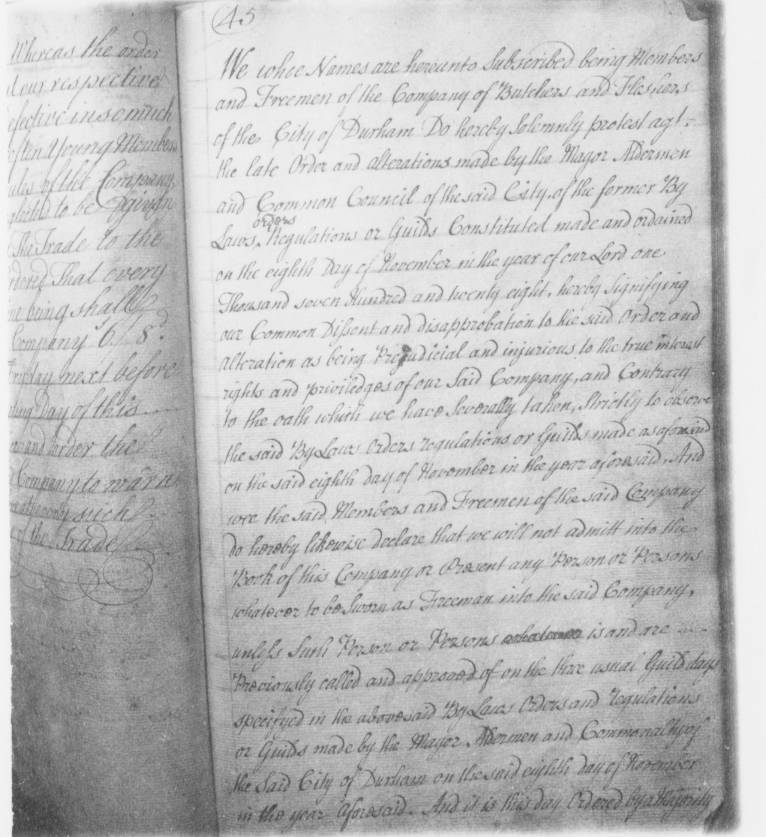 Whereas the order
our respective
efective insomuch
often Young Members
of the Company
to be Given
The Trade to the
ordered That every
being shall
Company 6. 8.
next before
Day of this
and order the
Company to warn
such
of the Trade
45
We whose Names are hereunto Subscribed being Members
and Freemen of the Company of Butchers and Fleshers
of the City of Durham Do hereby Solemnly protest agt.
the late Order and alterations made by the Mayor Aldermen
and Common Council of the said City, of the former By
Laws, orders Regulations or Guilds Constituted made and ordained
on the eighth Day of November in the year of our Lord one
Thousand seven Hundred and twenty eight, hereby signifying
our Common Dissent and disapprobation to the said Order and
alteration as being Prejudicial and injurious to the true interest
rights and priviledges of our Said Company, and Contrary
to the oath which we have Severally taken, Strictly to observe
the said By Laws Orders regulations or Guilds made aforesaid
on the said eighth day of November in the year aforesaid. And
wee the said Members and Freemen of the said Company
do hereby likewise declare that we will not admitt into the
Book of this Company or Present any Person or Persons
whatever to be Sworn as Freeman into the said Company,
unless Such Person or Persons whatever is and are
Previously called and approved of on the three usual Guild days
specifyed in the abovesaid By Laws Orders and regulations
or Guilds made by the Mayor Aldermen and Commonalty of
the Said City of Durham on the said eighth day of November
in the year aforesaid. And it is this day Ordered by a Majority